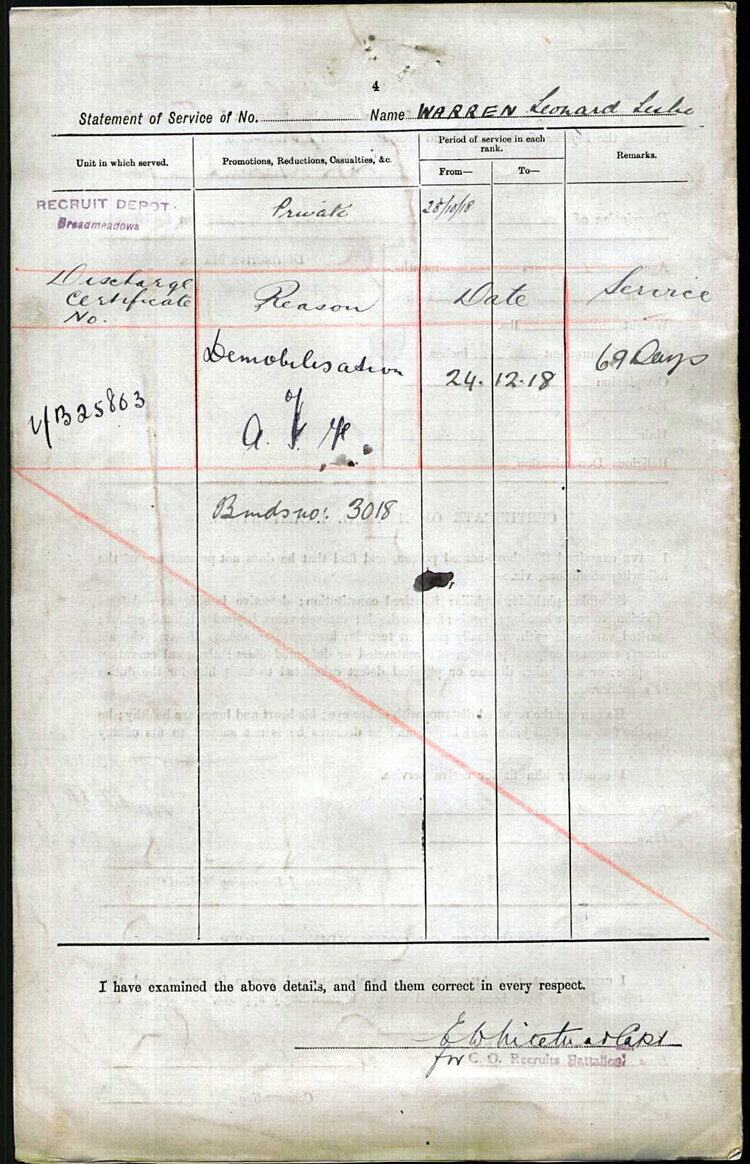 4
Statement of Service of No. Name WARREN Leonard Leslie
Unit in which served.
Promotions, Reductions, Casualties, &c.
Period of service in each rank.
From—
To—
Remarks.
RECRUIT DEPOT.
Broadmeadows
Private
28/10/18
Discharge
Certificate
No.
Reason
Date
Service
Demobilisation
of
A. I. F.
24.12.18
69 Days
B25863
3018
I have examined the above details, and find them correct in every respect.
Capt
for C. O. Recruits Battalion